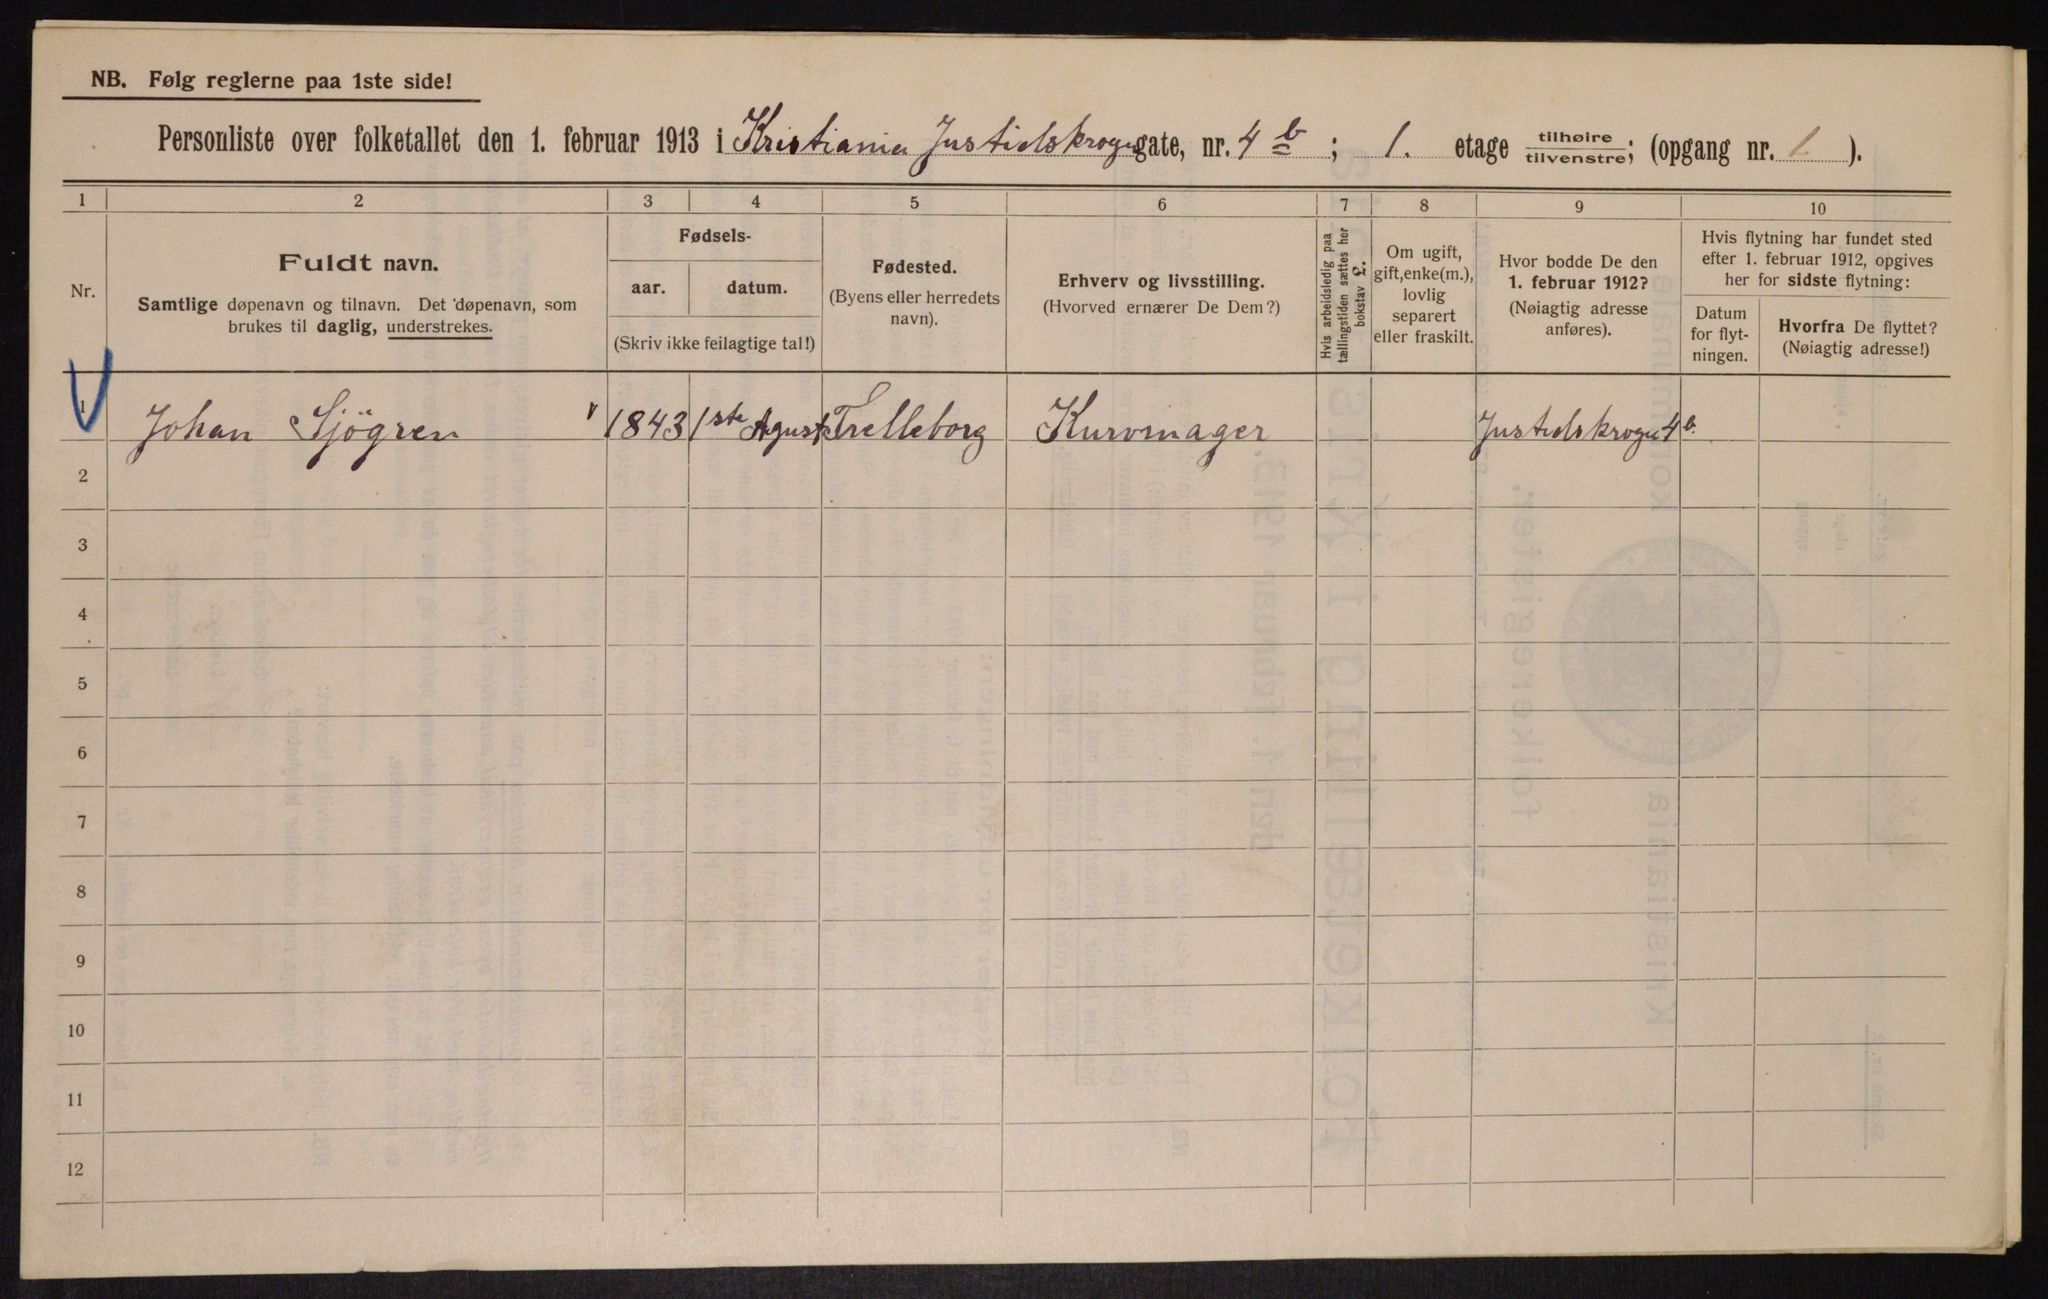 NB. Følg reglerne paa 1ste side!
Personliste over folketallet den 1. februar 1913 i Kristiania Justidskrogu gate, nr. 4 b ; 1. etage tilhøire/tilvenstre; (opgang nr. 1 ).
1 2 3 4 5 6 7 8 9 10
Nr.
Fuldt navn.
Samtlige døpenavn og tilnavn. Det døpenavn, som
brukes til daglig, understrekes.
Fødsels-
aar. datum.
(Skriv ikke feilagtige tal!)
Fødested.
(Byens eller herredets
navn).
Erhverv og livsstilling.
(Hvorved ernærer De Dem?)
Hvis arbeidsledig paa
tællingstiden sættes her
bokstav £.
Om ugift,
gift, enke(m.),
lovlig
separert
eller fraskilt.
Hvor bodde De den
1. februar 1912?
(Nøiagtig adresse
anføres).
Hvis flytning har fundet sted
efter 1. februar 1912, opgives
her for sidste flytning:
Datum
for flyt-
ningen.
Hvorfra De flyttet?
(Nøiagtig adresse!)
1 Johan Sjögren 1843 1ste Agust Trelleborg Kurvmager Justidskrogu 4 b.
2
3
4
5
6
7
8
9
10
11
12